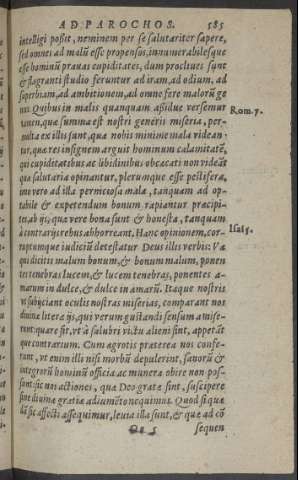 AD PAROCHOS. 585
intelligi possit, neminem per se salutariter sapere,
sed omnes ad malū esse propensos, innumerabilesque
esse hominū prauas cupiditates, dum procliues sunt
& flagranti studio feruntur ad iram, ad odium, ad
superbiam, ad ambitionem, ad omne fere malorū ge
nus. Quibus in malis quanquam assidue versemur
Rom. 7.
tamen, quæ summa est nostri generis miseria, per-
multa ex illis sunt, quæ nobis minime mala videan-
tur, quæ res insignem arguit hominum calamitatē,
qui cupiditatibus ac libidinibus obcæcati non videāt
quæ salutaria opinantur, plerunque esse pestifera,
imo vero ad illa perniciosa mala, tanquam ad op-
tabile & expetendum bonum rapiantur præcipi-
tes, ab ijs, quæ vere bona sunt & honesta, tanquam
à contrarijs rebus abhorreant. Hanc opinionem, cor-
Isai 5.
ruptumque iudiciū detestatur Deus illis verbis: Væ
qui dicitis malum bonum, & bonum malum, ponen
tes tenebras lucem, & lucem tenebras, ponentes a-
marum in dulce, & dulce in amarū. Itaque nostris
vt subijciant oculis nostras miserias, comparant nos
diuinæ literæ ijs, qui verum gustandi sensum amise-
runt: quare fit, vt à salubri victu alieni sint, appetāt
que contrarium. Cum ægrotis præterea nos confe-
runt, vt enim illi nisi morbū depulerint, sanorū &
integrorū hominū officia ac munera obire non pos-
sunt: sic nos actiones, quæ Deo gratæ sint, suscipere
sine diuinæ gratiæ adiumēto nequimus. Quod si quæ
sic affecti assequimur, leuia illa sunt, & quæ ad cō
Oo 5
sequen